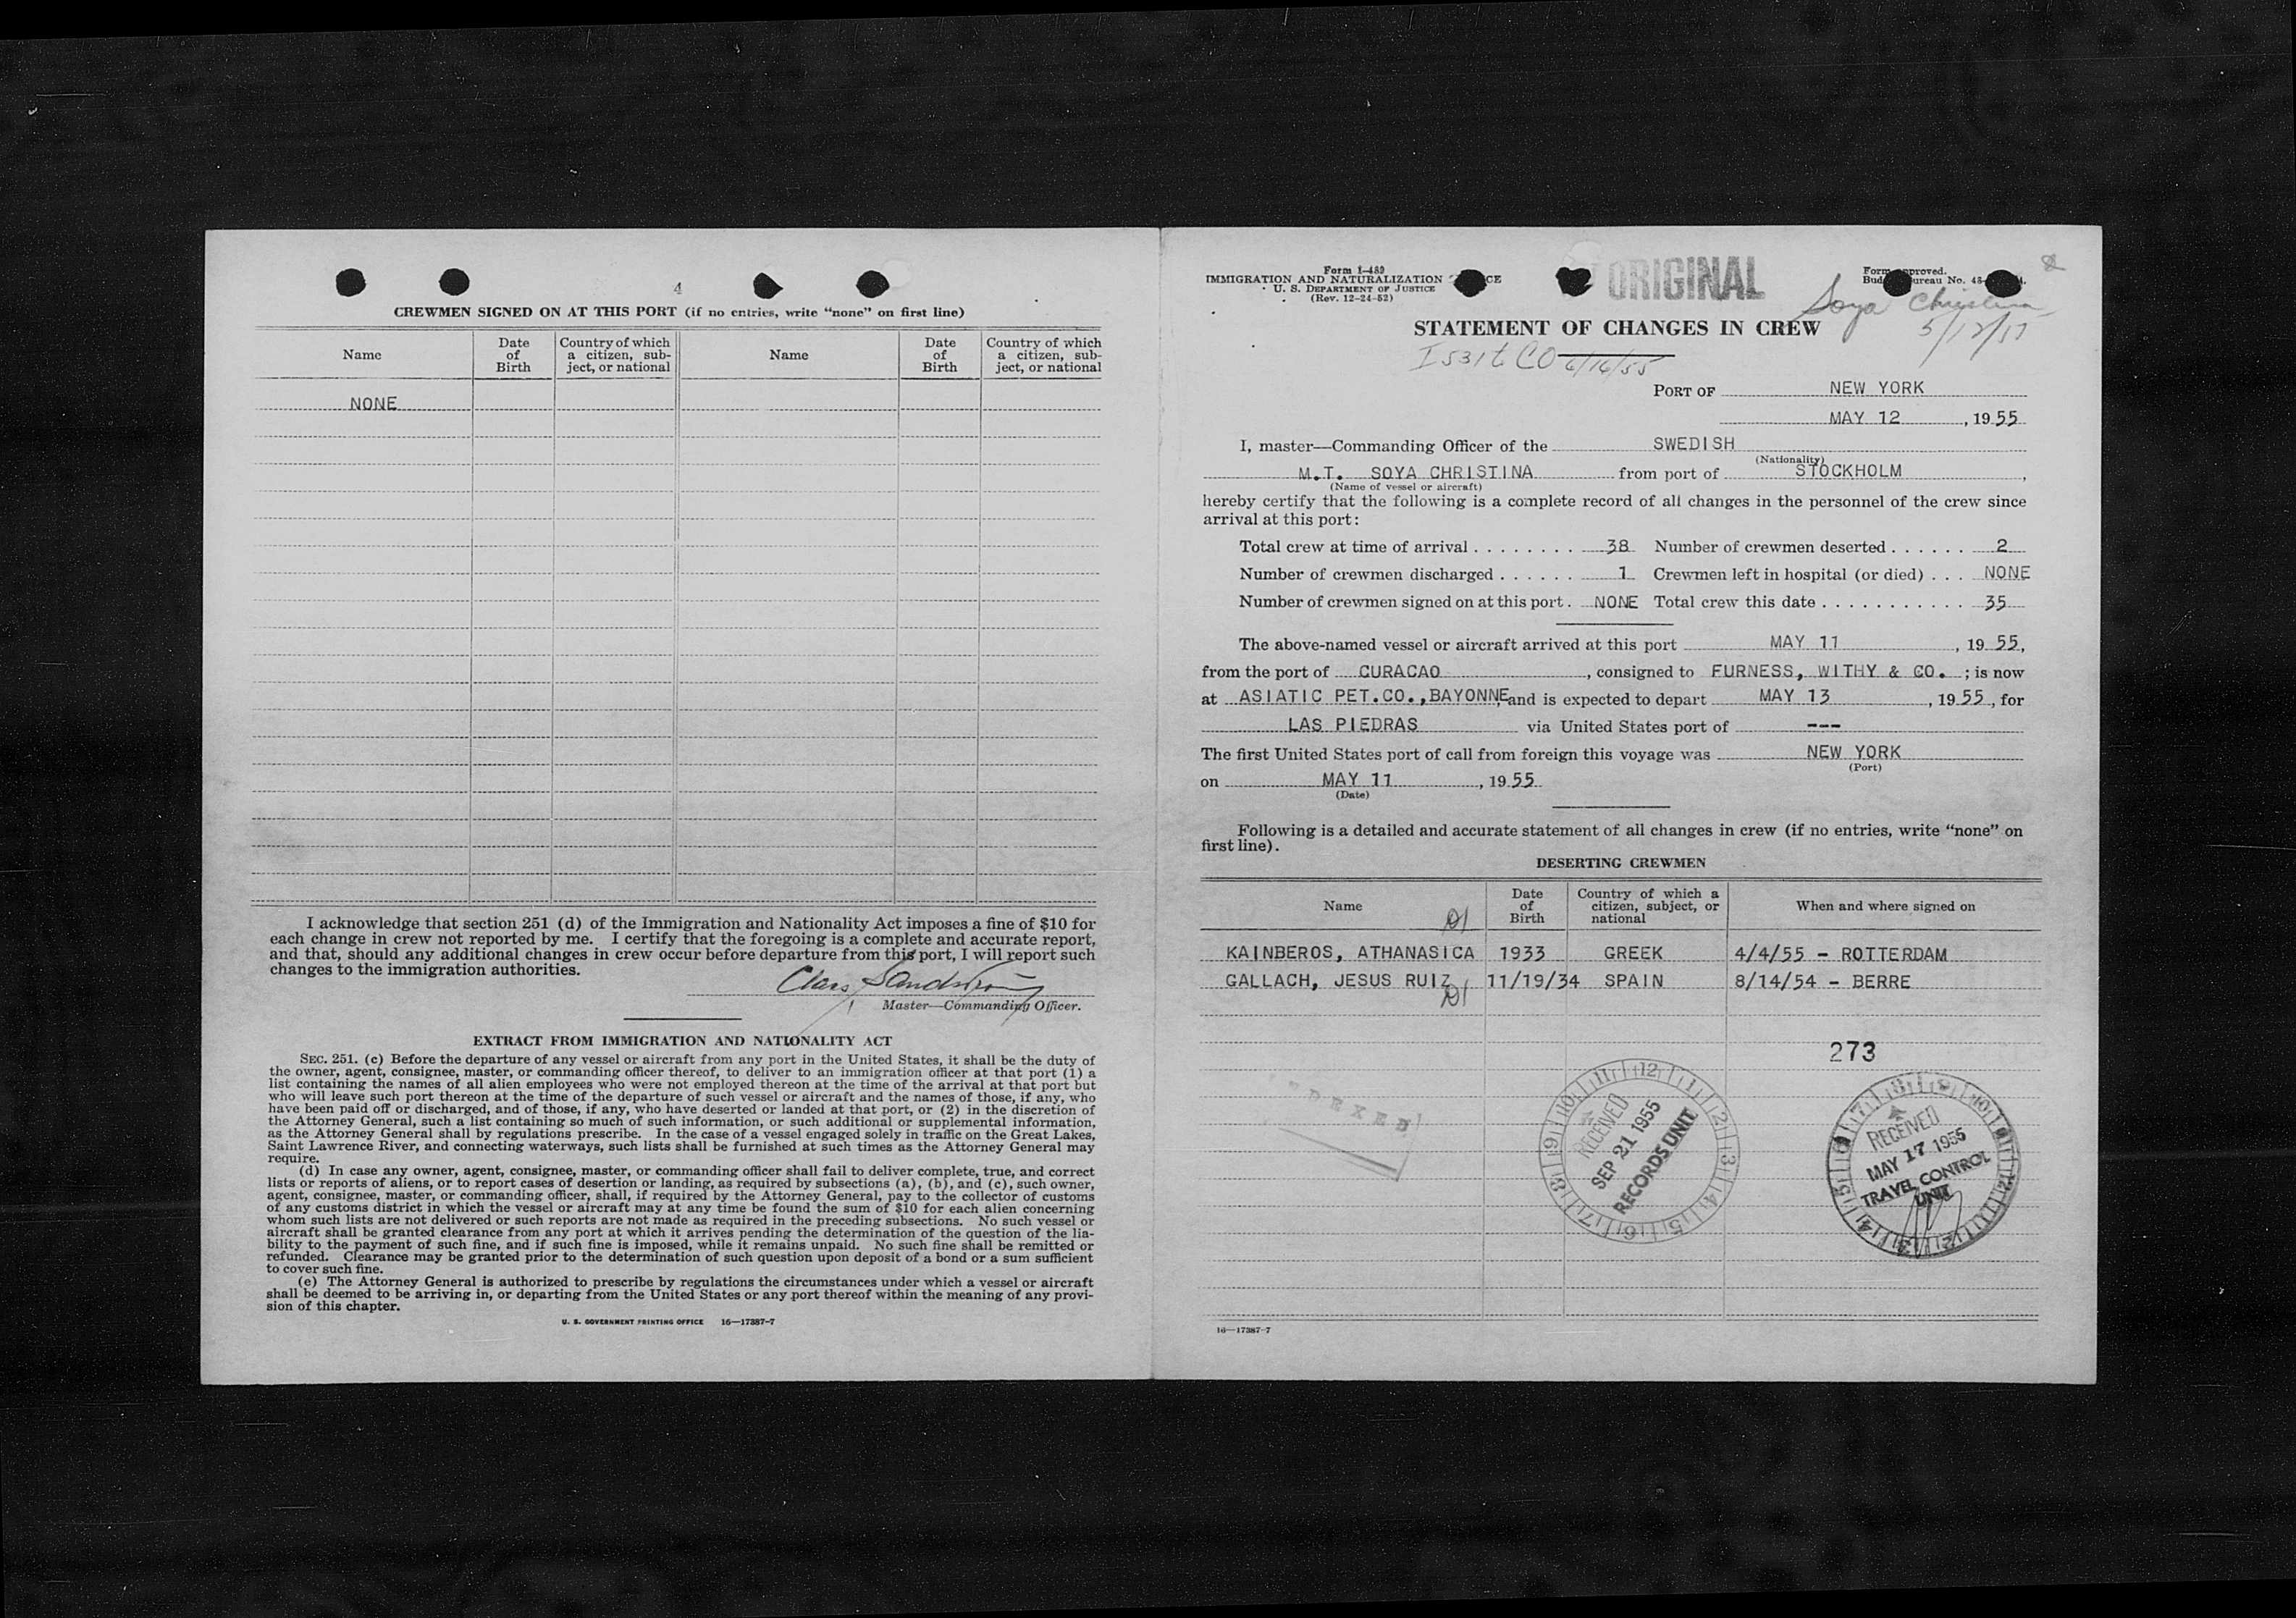 4
CREWMEN SIGNED ON AT THIS PORT (if no entries, write “none” on first line)
Name
Date of Birth
Country of which a citizen, sub-ject, or national
Name
Date of Birth
Country of which a citizen, sub-ject, or national
NONE
I acknowledge that section 251 (d) of the Immigration and Nationality Act imposes a fine of $10 for
each change in crew not reported by me. I certify that the foregoing is a complete and accurate report,
and that, should any additional changes in crew occur before departure from this port, I will report such
changes to the immigration authorities.
Master—Commanding Officer.
EXTRACT FROM IMMIGRATION AND NATIONALITY ACT
SEC. 251. (c) Before the departure of any vessel or aircraft from any port in the United States, it shall be the duty of
the owner, agent, consignee, master, or commanding officer thereof, to deliver to an immigration officer at that port (1) a
list containing the names of all alien employees who were not employed thereon at the time of the arrival at that port but
who will leave such port thereon at the time of the departure of such vessel or aircraft and the names of those, if any, who
have been paid off or discharged, and of those, if any, who have deserted or landed at that port, or (2) in the discretion of
the Attorney General, such a list containing so much of such information, or such additional or supplemental information,
as the Attorney General shall by regulations prescribe. In the case of a vessel engaged solely in traffic on the Great Lakes,
Saint Lawrence River, and connecting waterways, such lists shall be furnished at such times as the Attorney General may
require.
(d) In case any owner, agent, consignee, master, or commanding officer shall fail to deliver complete, true, and correct
lists or reports of aliens, or to report cases of desertion or landing, as required by subsections (a), (b), and (c), such owner,
agent, consignee, master, or commanding officer, shall, if required by the Attorney General, pay to the collector of customs
of any customs district in which the vessel or aircraft may at any time be found the sum of $10 for each alien concerning
whom such lists are not delivered or such reports are not made as required in the preceding subsections. No such vessel or
aircraft shall be granted clearance from any port at which it arrives pending the determination of the question of the lia-
bility to the payment of such fine, and if such fine is imposed, while it remains unpaid. No such fine shall be remitted or
refunded. Clearance may be granted prior to the determination of such question upon deposit of a bond or a sum sufficient
to cover such fine.
(e) The Attorney General is authorized to prescribe by regulations the circumstances under which a vessel or aircraft
shall be deemed to be arriving in, or departing from the United States or any port thereof within the meaning of any provi-
sion of this chapter.
U. S. GOVERNMENT PRINTING OFFICE 16—17387-7
Form I-489
IMMIGRATION AND NATURALIZATION
U. S. DEPARTMENT OF JUSTICE
(Rev. 12-24-52)
ORIGINAL
Soya Christina
STATEMENT OF CHANGES IN CREW
6/16/55
PORT OF NEW YORK
MAY 12, 1955
I, master—Commanding Officer of the SWEDISH
(Nationality)
M.T. SOYA CHRISTINA from port of STOCKHOLM,
(Name of vessel or aircraft)
hereby certify that the following is a complete record of all changes in the personnel of the crew since
arrival at this port:
Total crew at time of arrival ........ 38 Number of crewmen deserted ...... 2
Number of crewmen discharged ...... 1 Crewmen left in hospital (or died) ... NONE
Number of crewmen signed on at this port. NONE Total crew this date ........... 35
The above-named vessel or aircraft arrived at this port MAY 11, 1955,
from the port of CURACAO, consigned to FURNESS, WITHY & CO. ; is now
at ASIATIC PET.CO.,BAYONNE, and is expected to depart MAY 13, 1955, for
LAS PIEDRAS via United States port of ---
The first United States port of call from foreign this voyage was NEW YORK
(Port)
on MAY 11, 1955.
(Date)
Following is a detailed and accurate statement of all changes in crew (if no entries, write “none” on
first line).
DESERTING CREWMEN
Name
Date of Birth
Country of which a citizen, subject, or national
When and where signed on
KAINBEROS, ATHANASICA 1933 GREEK 4/4/55 - ROTTERDAM
GALLACH, JESUS RUIZ 11/19/34 SPAIN 8/14/54 - BERRE
273
RECEIVED
SEP 21 1955
RECORDS UNIT
RECEIVED
MAY 17 1955
TRAVEL CONTROL
UNIT
16—17387-7